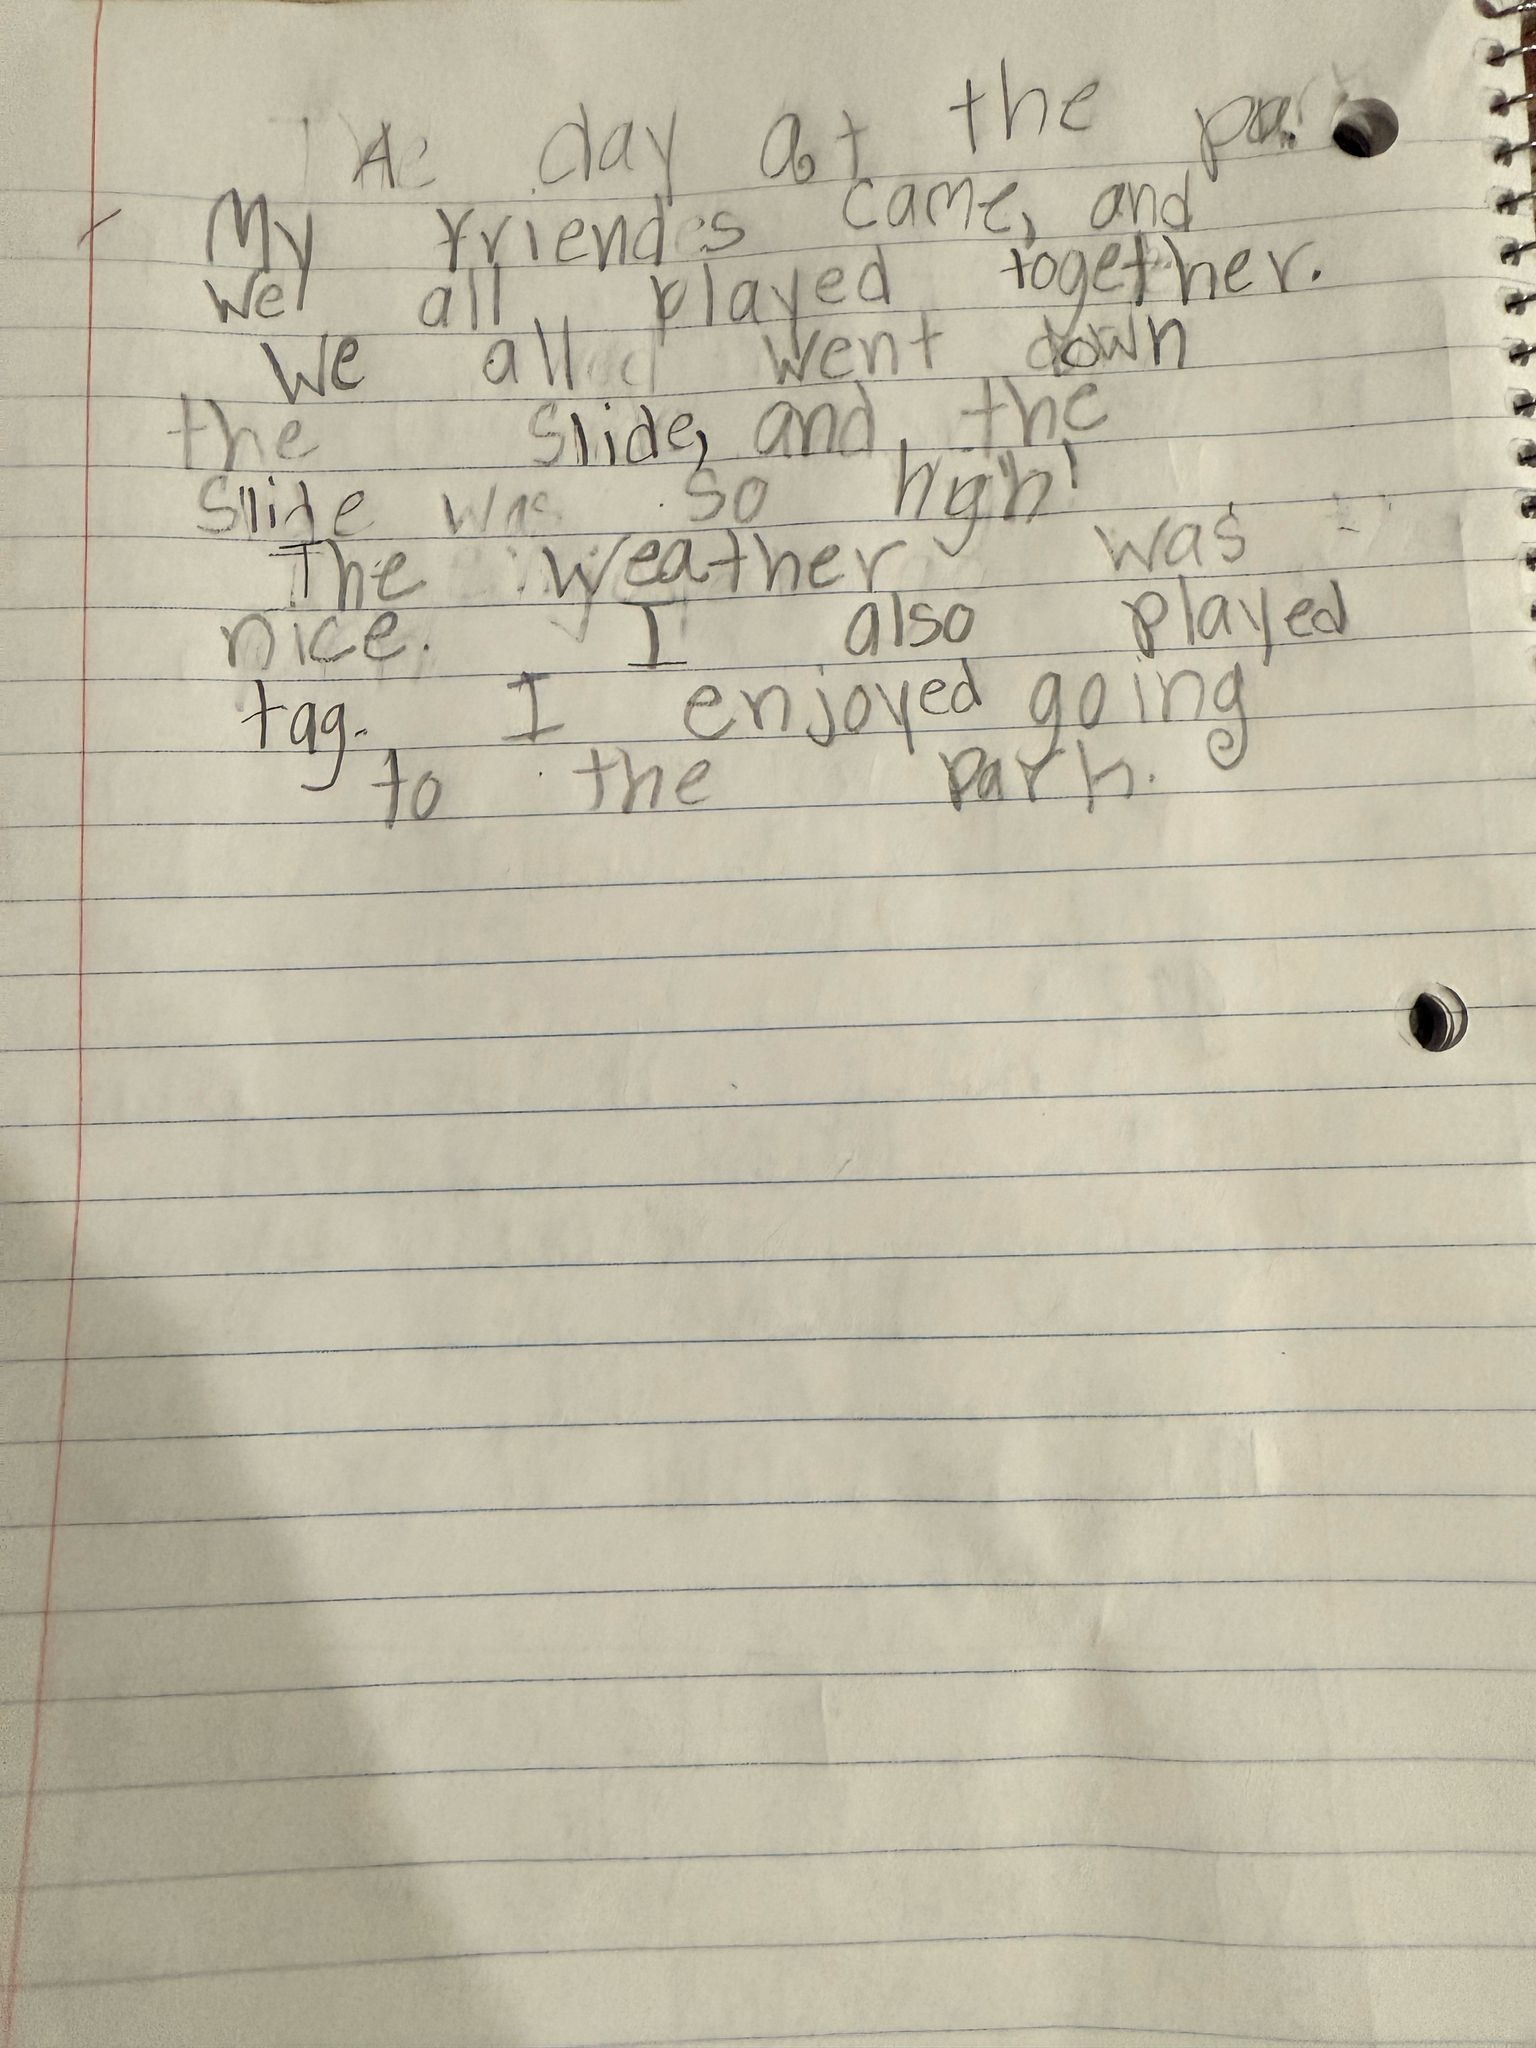 A day at the par
My friends came, and
we all played together.
We all went down
the slide, and the
slide was so high!
The weather was
nice. I also played
tag. I enjoyed going
to the park.